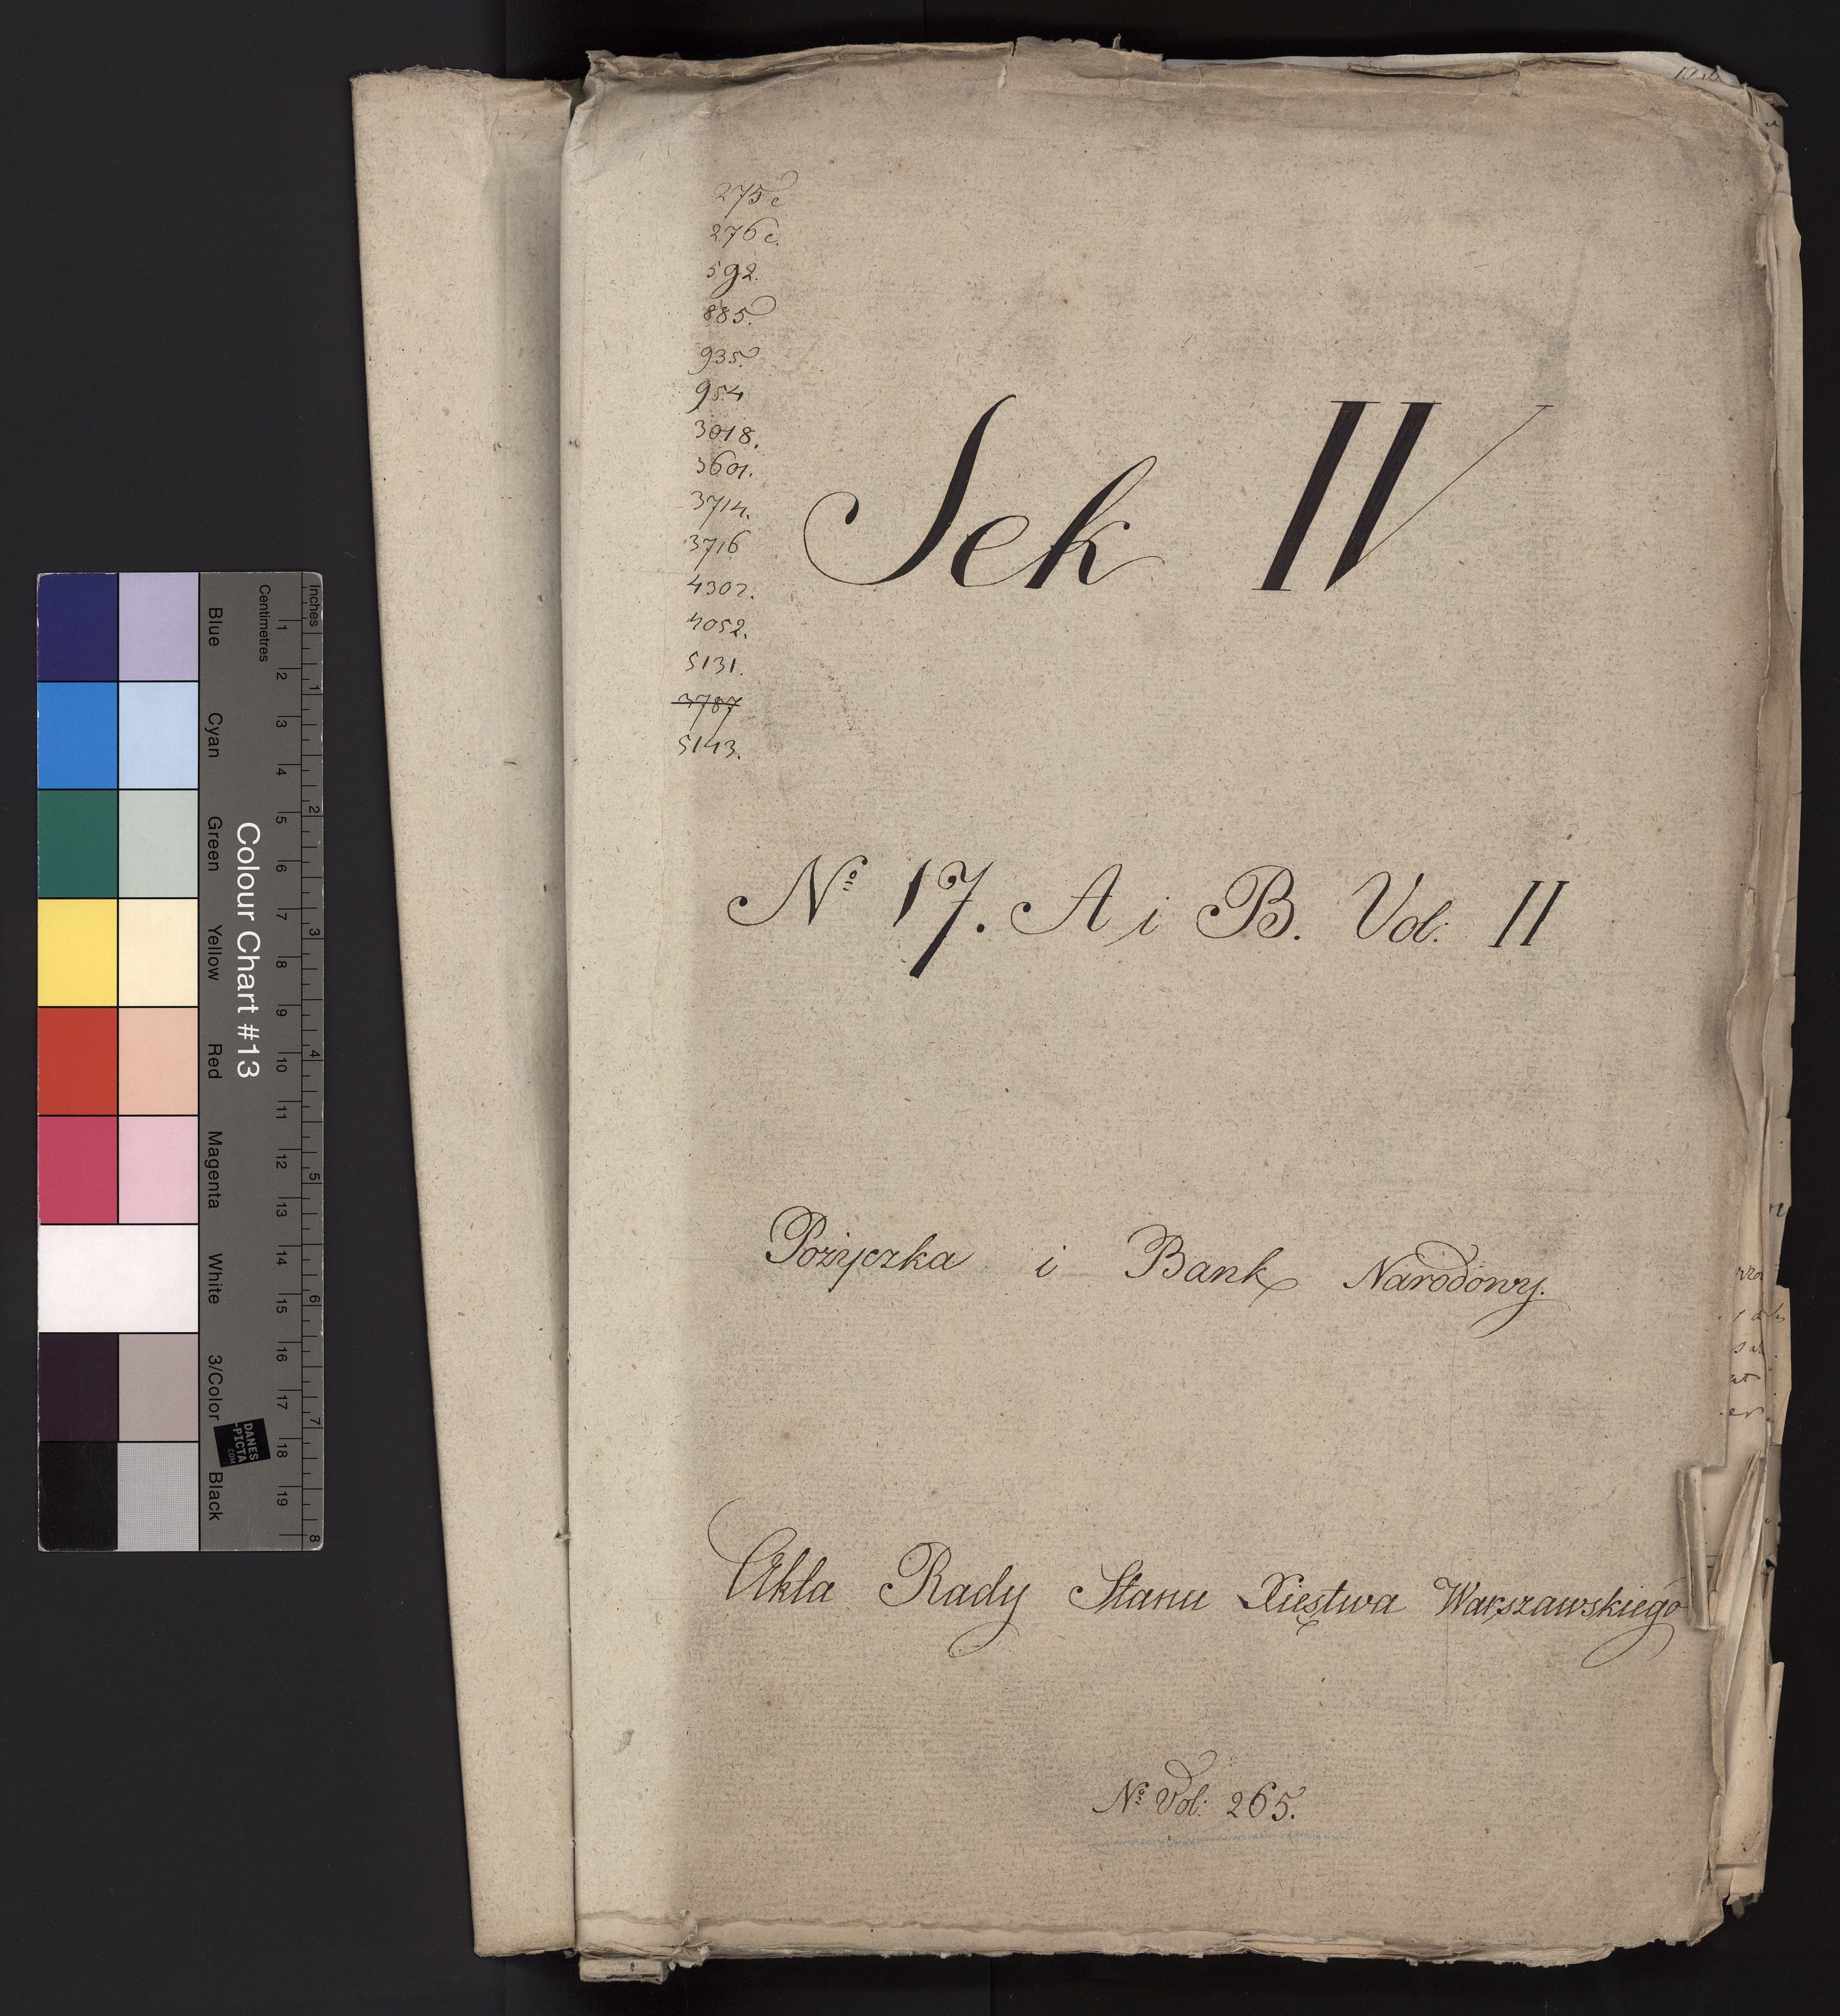 275 c
276 c.
592.
885.
935.
954
3018.
3601.
3714.
3716
4302.
4052.
5131.
3787
5143.
Sek IV
No 17. A i B. Vol: II
Pożyczka i Bank Narodowy.
Akta Rady Stanu Xięstwa Warszawskiego
No Vol: 265.
Colour Chart #13
Blue Cyan Green Yellow Red Magenta White 3/Color Black
Centimetres 1 2 3 4 5 6 7 8 9 10 11 12 13 14 15 16 17 18 19
Inches 1 2 3 4 5 6 7 8
DANES
-PICTA
.COM